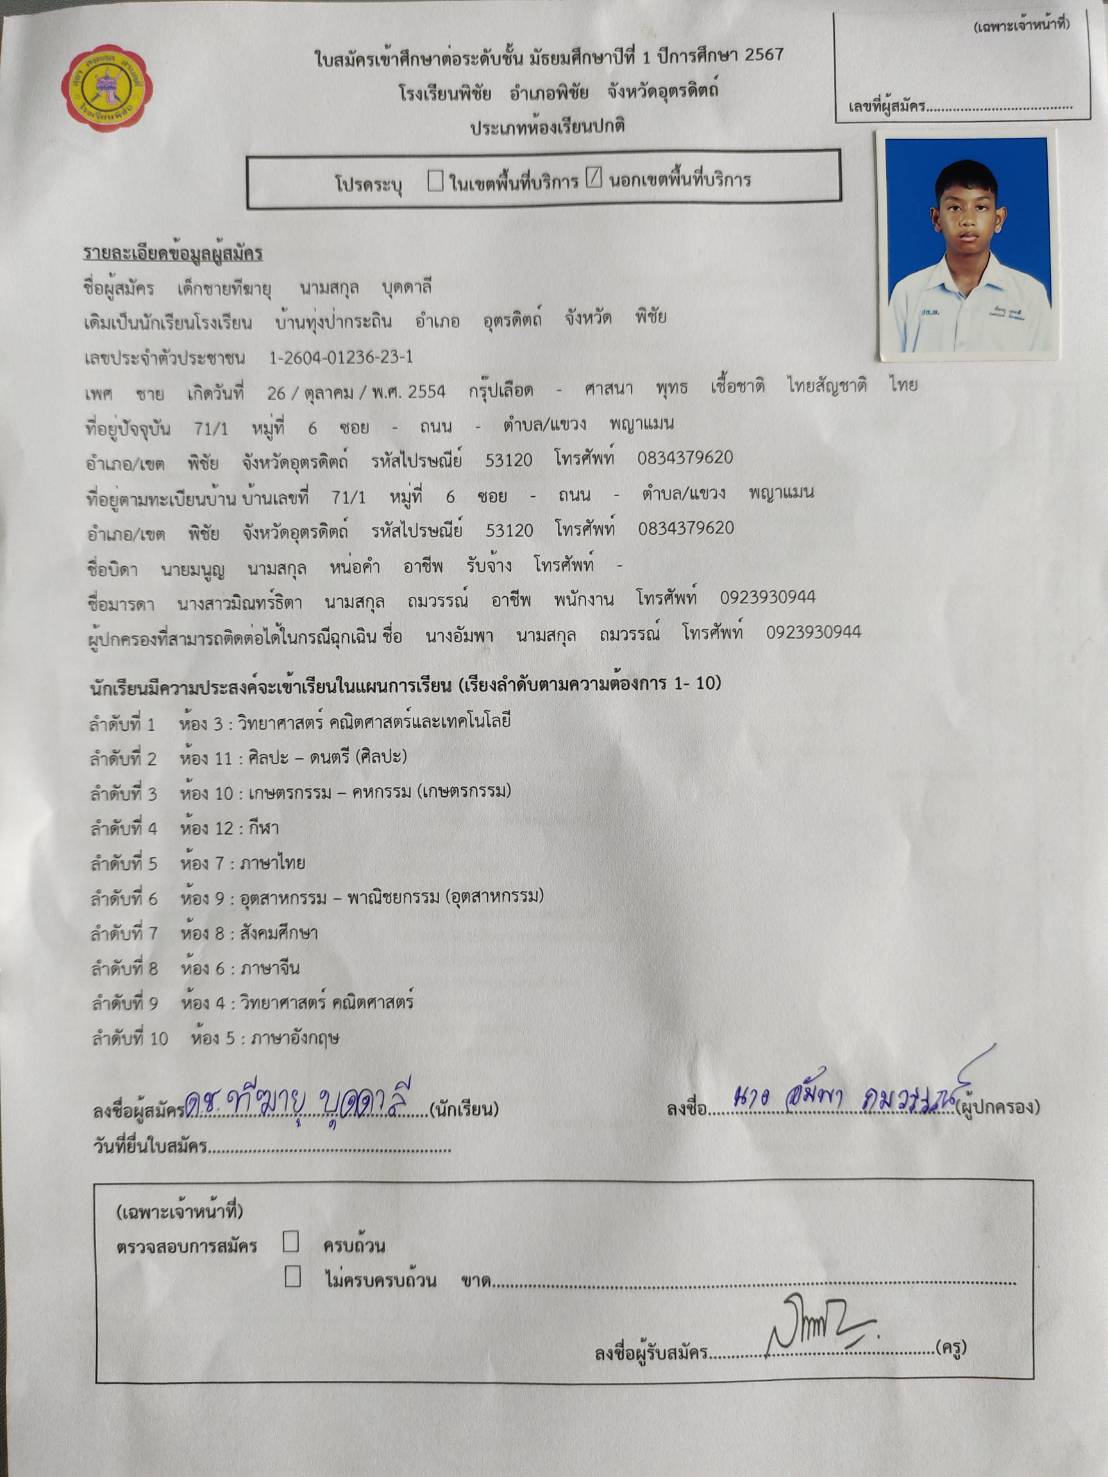 (เฉพาะเจ้าหน้าที่)
เลขที่ผู้สมัคร.......................................
ใบสมัครเข้าศึกษาต่อระดับชั้น มัธยมศึกษาปีที่ 1 ปีการศึกษา 2567
โรงเรียนพิชัย อำเภอพิชัย จังหวัดอุตรดิตถ์
ประเภทห้องเรียนปกติ
โปรดระบุ ☐ ในเขตพื้นที่บริการ ☑ นอกเขตพื้นที่บริการ
รายละเอียดข้อมูลผู้สมัคร
ชื่อผู้สมัคร เด็กชายทีฆายุ นามสกุล บุดดาลี
เดิมเป็นนักเรียนโรงเรียน บ้านทุ่งป่ากระถิน อำเภอ อุตรดิตถ์ จังหวัด พิชัย
เลขประจำตัวประชาชน 1-2604-01236-23-1
เพศ ชาย เกิดวันที่ 26 / ตุลาคม / พ.ศ. 2554 กรุ๊ปเลือด - ศาสนา พุทธ เชื้อชาติ ไทยสัญชาติ ไทย
ที่อยู่ปัจจุบัน 71/1 หมู่ที่ 6 ซอย - ถนน - ตำบล/แขวง พญาแมน
อำเภอ/เขต พิชัย จังหวัดอุตรดิตถ์ รหัสไปรษณีย์ 53120 โทรศัพท์ 0834379620
ที่อยู่ตามทะเบียนบ้าน บ้านเลขที่ 71/1 หมู่ที่ 6 ซอย - ถนน - ตำบล/แขวง พญาแมน
อำเภอ/เขต พิชัย จังหวัดอุตรดิตถ์ รหัสไปรษณีย์ 53120 โทรศัพท์ 0834379620
ชื่อบิดา นายมนูญ นามสกุล หน่อคำ อาชีพ รับจ้าง โทรศัพท์ -
ชื่อมารดา นางสาวมิณทร์ธิตา นามสกุล ถมวรรณ์ อาชีพ พนักงาน โทรศัพท์ 0923930944
ผู้ปกครองที่สามารถติดต่อได้ในกรณีฉุกเฉิน ชื่อ นางอัมพา นามสกุล ถมวรรณ์ โทรศัพท์ 0923930944
นักเรียนมีความประสงค์จะเข้าเรียนในแผนการเรียน (เรียงลำดับตามความต้องการ 1- 10)
ลำดับที่ 1 ห้อง 3 : วิทยาศาสตร์ คณิตศาสตร์และเทคโนโลยี
ลำดับที่ 2 ห้อง 11 : ศิลปะ – ดนตรี (ศิลปะ)
ลำดับที่ 3 ห้อง 10 : เกษตรกรรม – คหกรรม (เกษตรกรรม)
ลำดับที่ 4 ห้อง 12 : กีฬา
ลำดับที่ 5 ห้อง 7 : ภาษาไทย
ลำดับที่ 6 ห้อง 9 : อุตสาหกรรม – พาณิชยกรรม (อุตสาหกรรม)
ลำดับที่ 7 ห้อง 8 : สังคมศึกษา
ลำดับที่ 8 ห้อง 6 : ภาษาจีน
ลำดับที่ 9 ห้อง 4 : วิทยาศาสตร์ คณิตศาสตร์
ลำดับที่ 10 ห้อง 5 : ภาษาอังกฤษ
ลงชื่อผู้สมัคร ดช.ทีฆายุ บุดดาลี (นักเรียน) ลงชื่อ นาง อัมพา ถมวรรณ์ (ผู้ปกครอง)
วันที่ยื่นใบสมัคร....................................................
(เฉพาะเจ้าหน้าที่)
ตรวจสอบการสมัคร ☐ ครบถ้วน
☐ ไม่ครบครบถ้วน ขาด....................................................
ลงชื่อผู้รับสมัคร....................................................(ครู)